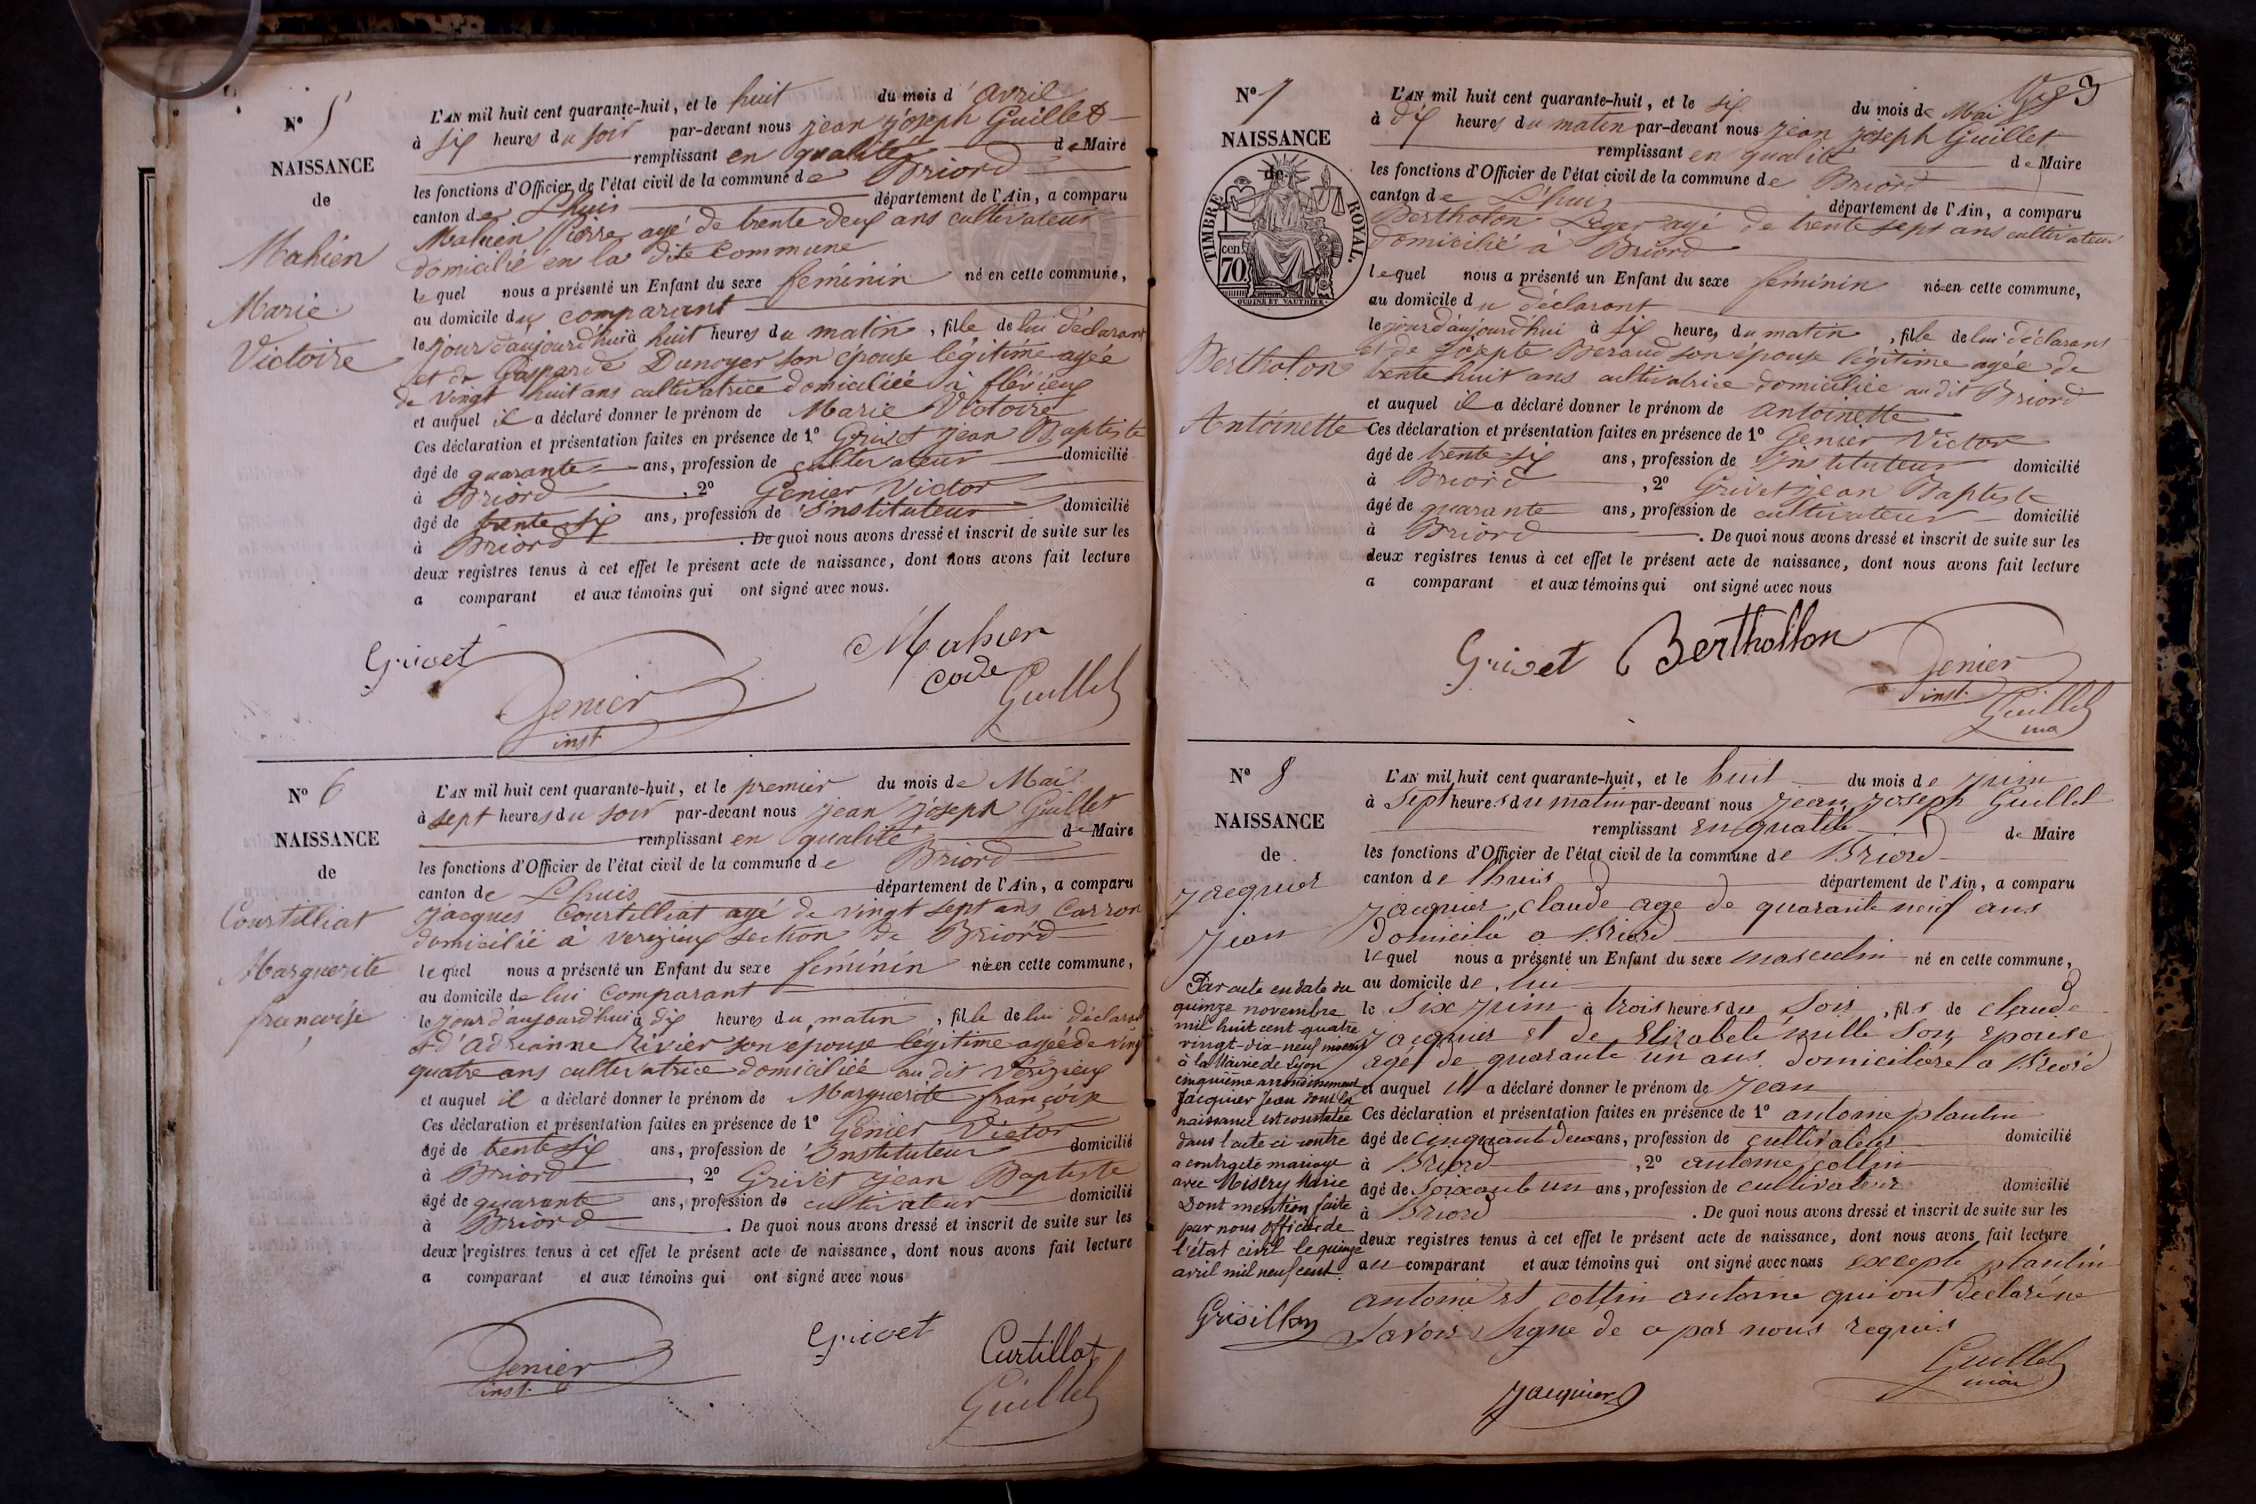 N° 5
NAISSANCE
de
Mahien
Marie
Victoire
L'AN mil huit cent quarante-huit, et le huit du mois d'avril
à six heures du soir par-devant nous jean joseph Guillet
remplissant en qualité de Maire
les fonctions d'Officier de l'état civil de la commune de Briord
canton de Lhuis département de l'Ain, a comparu
Mahien Pierre agé de trente deux ans cultivateur
domicilié en la dite commune
lequel nous a présenté un Enfant du sexe féminin né en cette commune,
au domicile du comparant
le jour d'aujourd'hui à huit heures du matin, fille de lui déclarant
et de Gasparde Dunoyer son épouse légitime agée
de vingt huit ans cultivatrice domiciliée à flévieux
et auquel il a déclaré donner le prénom de Marie Victoire
Ces déclaration et présentation faites en présence de 1° Grivet jean Baptiste
âgé de quarante ans, profession de cultivateur domicilié
à Briord, 2° Genier Victor
âgé de trente six ans, profession de Instituteur domicilié
à Briord. De quoi nous avons dressé et inscrit de suite sur les
deux registres tenus à cet effet le présent acte de naissance, dont nous avons fait lecture
a comparant et aux témoins qui ont signé avec nous.
Grivet Mahien
Genier Guillet
inst.
N° 6
NAISSANCE
de
Courtilliat
Marguerite
françoise
L'AN mil huit cent quarante-huit, et le premier du mois de Mai
à sept heures du soir par-devant nous jean joseph Guillet
remplissant en qualité de Maire
les fonctions d'Officier de l'état civil de la commune de Briord
canton de Lhuis département de l'Ain, a comparu
jacques Courtilliat agé de vingt sept ans Carron
domicilié à verizieux section de Briord
lequel nous a présenté un Enfant du sexe féminin né en cette commune,
au domicile de lui comparant
le jour d'aujourd'hui à dix heures du matin, fille de lui déclarant
et d'adrianne Rivier son épouse légitime agée de vingt
quatre ans cultivatrice domiciliée au dit Verizieux
et auquel il a déclaré donner le prénom de Marguerite françoise
Ces déclaration et présentation faites en présence de 1° Genier Victor
âgé de trente six ans, profession de Instituteur domicilié
à Briord, 2° Grivet jean Baptiste
âgé de quarante ans, profession de cultivateur domicilié
à Briord. De quoi nous avons dressé et inscrit de suite sur les
deux registres tenus à cet effet le présent acte de naissance, dont nous avons fait lecture
a comparant et aux témoins qui ont signé avec nous
Genier Grivet Curtillat
inst. Guillet
N° 7
NAISSANCE
de
TIMBRE ROYAL.
70 cent
Berthoton
Antoinette
L'AN mil huit cent quarante-huit, et le six du mois de Mai
à dix heures du matin par-devant nous jean joseph Guillet
remplissant en qualité de Maire
les fonctions d'Officier de l'état civil de la commune de Briord
canton de L'huis département de l'Ain, a comparu
Berthoton Léger agé de trente sept ans cultivateur
domicilié à Briord
lequel nous a présenté un Enfant du sexe féminin né en cette commune,
au domicile du déclarant
le jour d'aujourd'hui à six heures du matin, fille de lui déclarant
et de josepte Beraud son épouse légitime agée de
trente huit ans cultivatrice domiciliée au dit Briord
et auquel il a déclaré donner le prénom de antoinette
Ces déclaration et présentation faites en présence de 1° Genier Victor
âgé de trente six ans, profession de Instituteur domicilié
à Briord, 2° Grivet jean Baptiste
âgé de quarante ans, profession de cultivateur domicilié
à Briord. De quoi nous avons dressé et inscrit de suite sur les
deux registres tenus à cet effet le présent acte de naissance, dont nous avons fait lecture
a comparant et aux témoins qui ont signé avec nous
Grivet Berthollon Genier
inst.
Guillet
N° 8
NAISSANCE
de
jacquier
jean
Par acte en date du
quinze novembre
mil huit cent quatre
vingt-dix-neuf inscrit
à la Mairie de Lyon
cinquième arrondissement
Jacquier Jean dont la
naissance est constatée
dans l'acte ci contre
a contracté mariage
avec Misery Marie
Dont mention faite
par nous officier de
l'état civil le quinze
avril mil neuf cent.
Grisillon
L'AN mil huit cent quarante-huit, et le huit du mois de juin
à sept heures du matin par-devant nous jean joseph Guillet
remplissant en qualité de Maire
les fonctions d'Officier de l'état civil de la commune de Briord
canton de lhuis département de l'Ain, a comparu
jacquier claude age de quarante neuf ans
domicilié a Briord
lequel nous a présenté un Enfant du sexe masculin né en cette commune,
au domicile de lui
le six juin à trois heures du soir, fils de claude
jacquier et de Elizabete mille son epouse
agé de quarante un ans domiciliere a Briord
et auquel il a déclaré donner le prénom de jean
Ces déclaration et présentation faites en présence de 1° antoine plantin
âgé de cinquante deux ans, profession de cultivateur domicilié
à Briord, 2° antoine cottin
âgé de soixante un ans, profession de cultivateur domicilié
à Briord. De quoi nous avons dressé et inscrit de suite sur les
deux registres tenus à cet effet le présent acte de naissance, dont nous avons fait lecture
au comparant et aux témoins qui ont signé avec nous excepte plantin
antoine et cottin antoine qui ont declaré ne
savoir signe de a par nous requis
jacquier Guillet